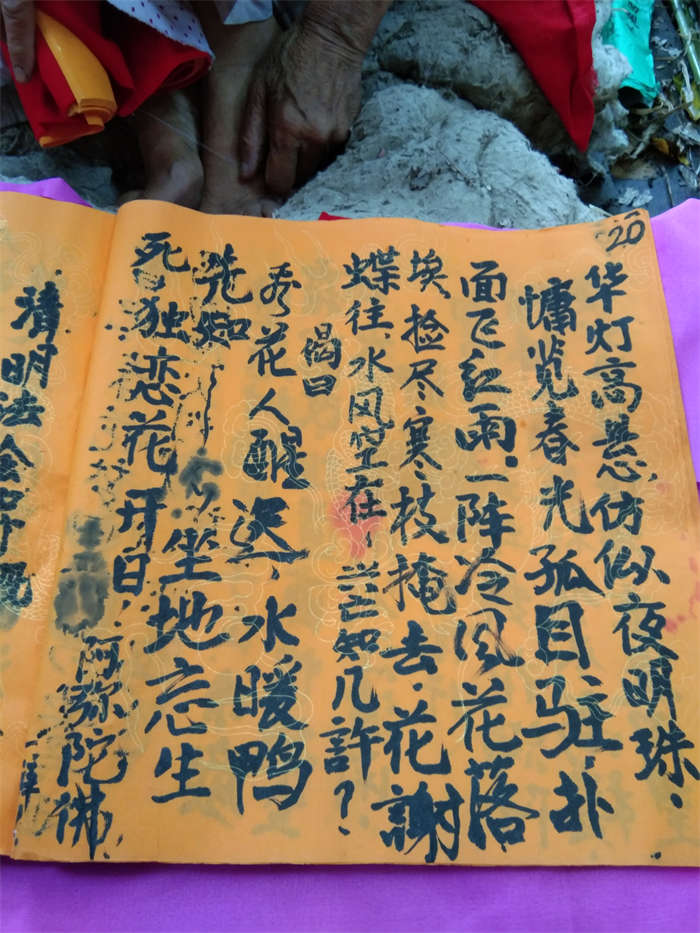 20
华灯高悬仿似夜明珠.
慵览春光孤目驻、扑
面飞红雨.一阵冷风花落
埃、捡尽寒枝掩去.花謝
蝶往、水风空在,岂知几許?
偈曰
秀花人醒迟、水暖鸭
先知 坐地忘生
死、独恋花开日.
阿弥陀佛
清明法会